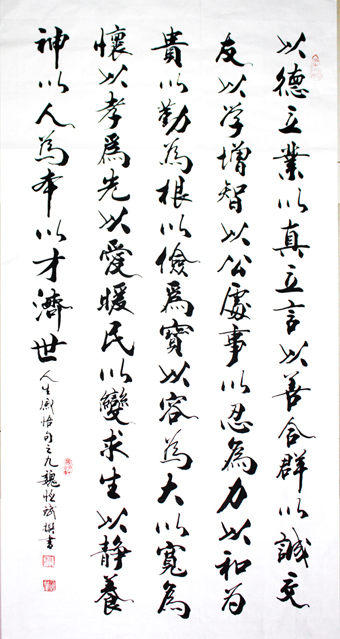 以德立業以真立言以善合群以誠交
友以学增智以公處事以忍為力以和为
貴以勤為根以儉為寶以容為大以寬為
懷以孝為先以愛暖民以變求生以静養
神以人為本以才濟世
人生感悟句之九魏恒斌撰書